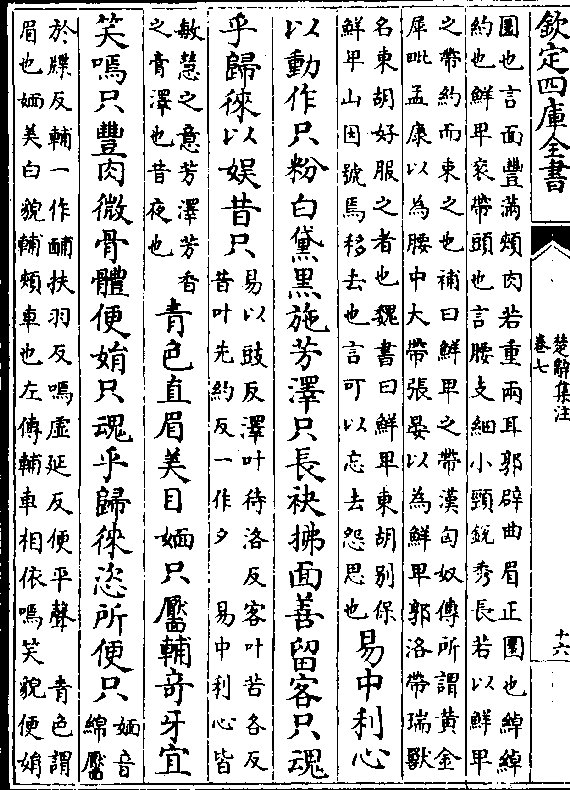 欽定四庫全書
楚辭集注
卷七
十六
圜也言面豐滿頰肉若重兩耳郭辟曲眉正圜也綽綽
約也鮮卑衮帶頭也言腰支細小頸銳秀長若以鮮卑
之帶約而束之也補曰鮮卑之帶漢匈奴傳所謂黃金
犀毗孟康以為腰中大帶張晏以為鮮卑郭洛帶瑞獸
名東胡好服之者也魏書曰鮮卑東胡別保
鮮卑山因號焉移去也言可以忘去怨思也
易中利心
以動作只粉白黛黑施芳澤只長袂拂面善留客只魂
乎歸徠以娛昔只
易以豉反澤叶待洛反客叶苦各反
昔叶先約反一作夕　易中利心皆
敏慧之意芳澤芳香
之膏澤也昔夜也
青色直眉美目媔只靨輔奇牙宜
笑嘕只豐肉微骨體便娟只魂乎歸徠恣所便只
媔音
綿靨
於牒反輔一作酺扶羽反嘕虛延反便平聲　青色謂
眉也媔美白貌輔頰車也左傳輔車相依嘕笑貌便娟